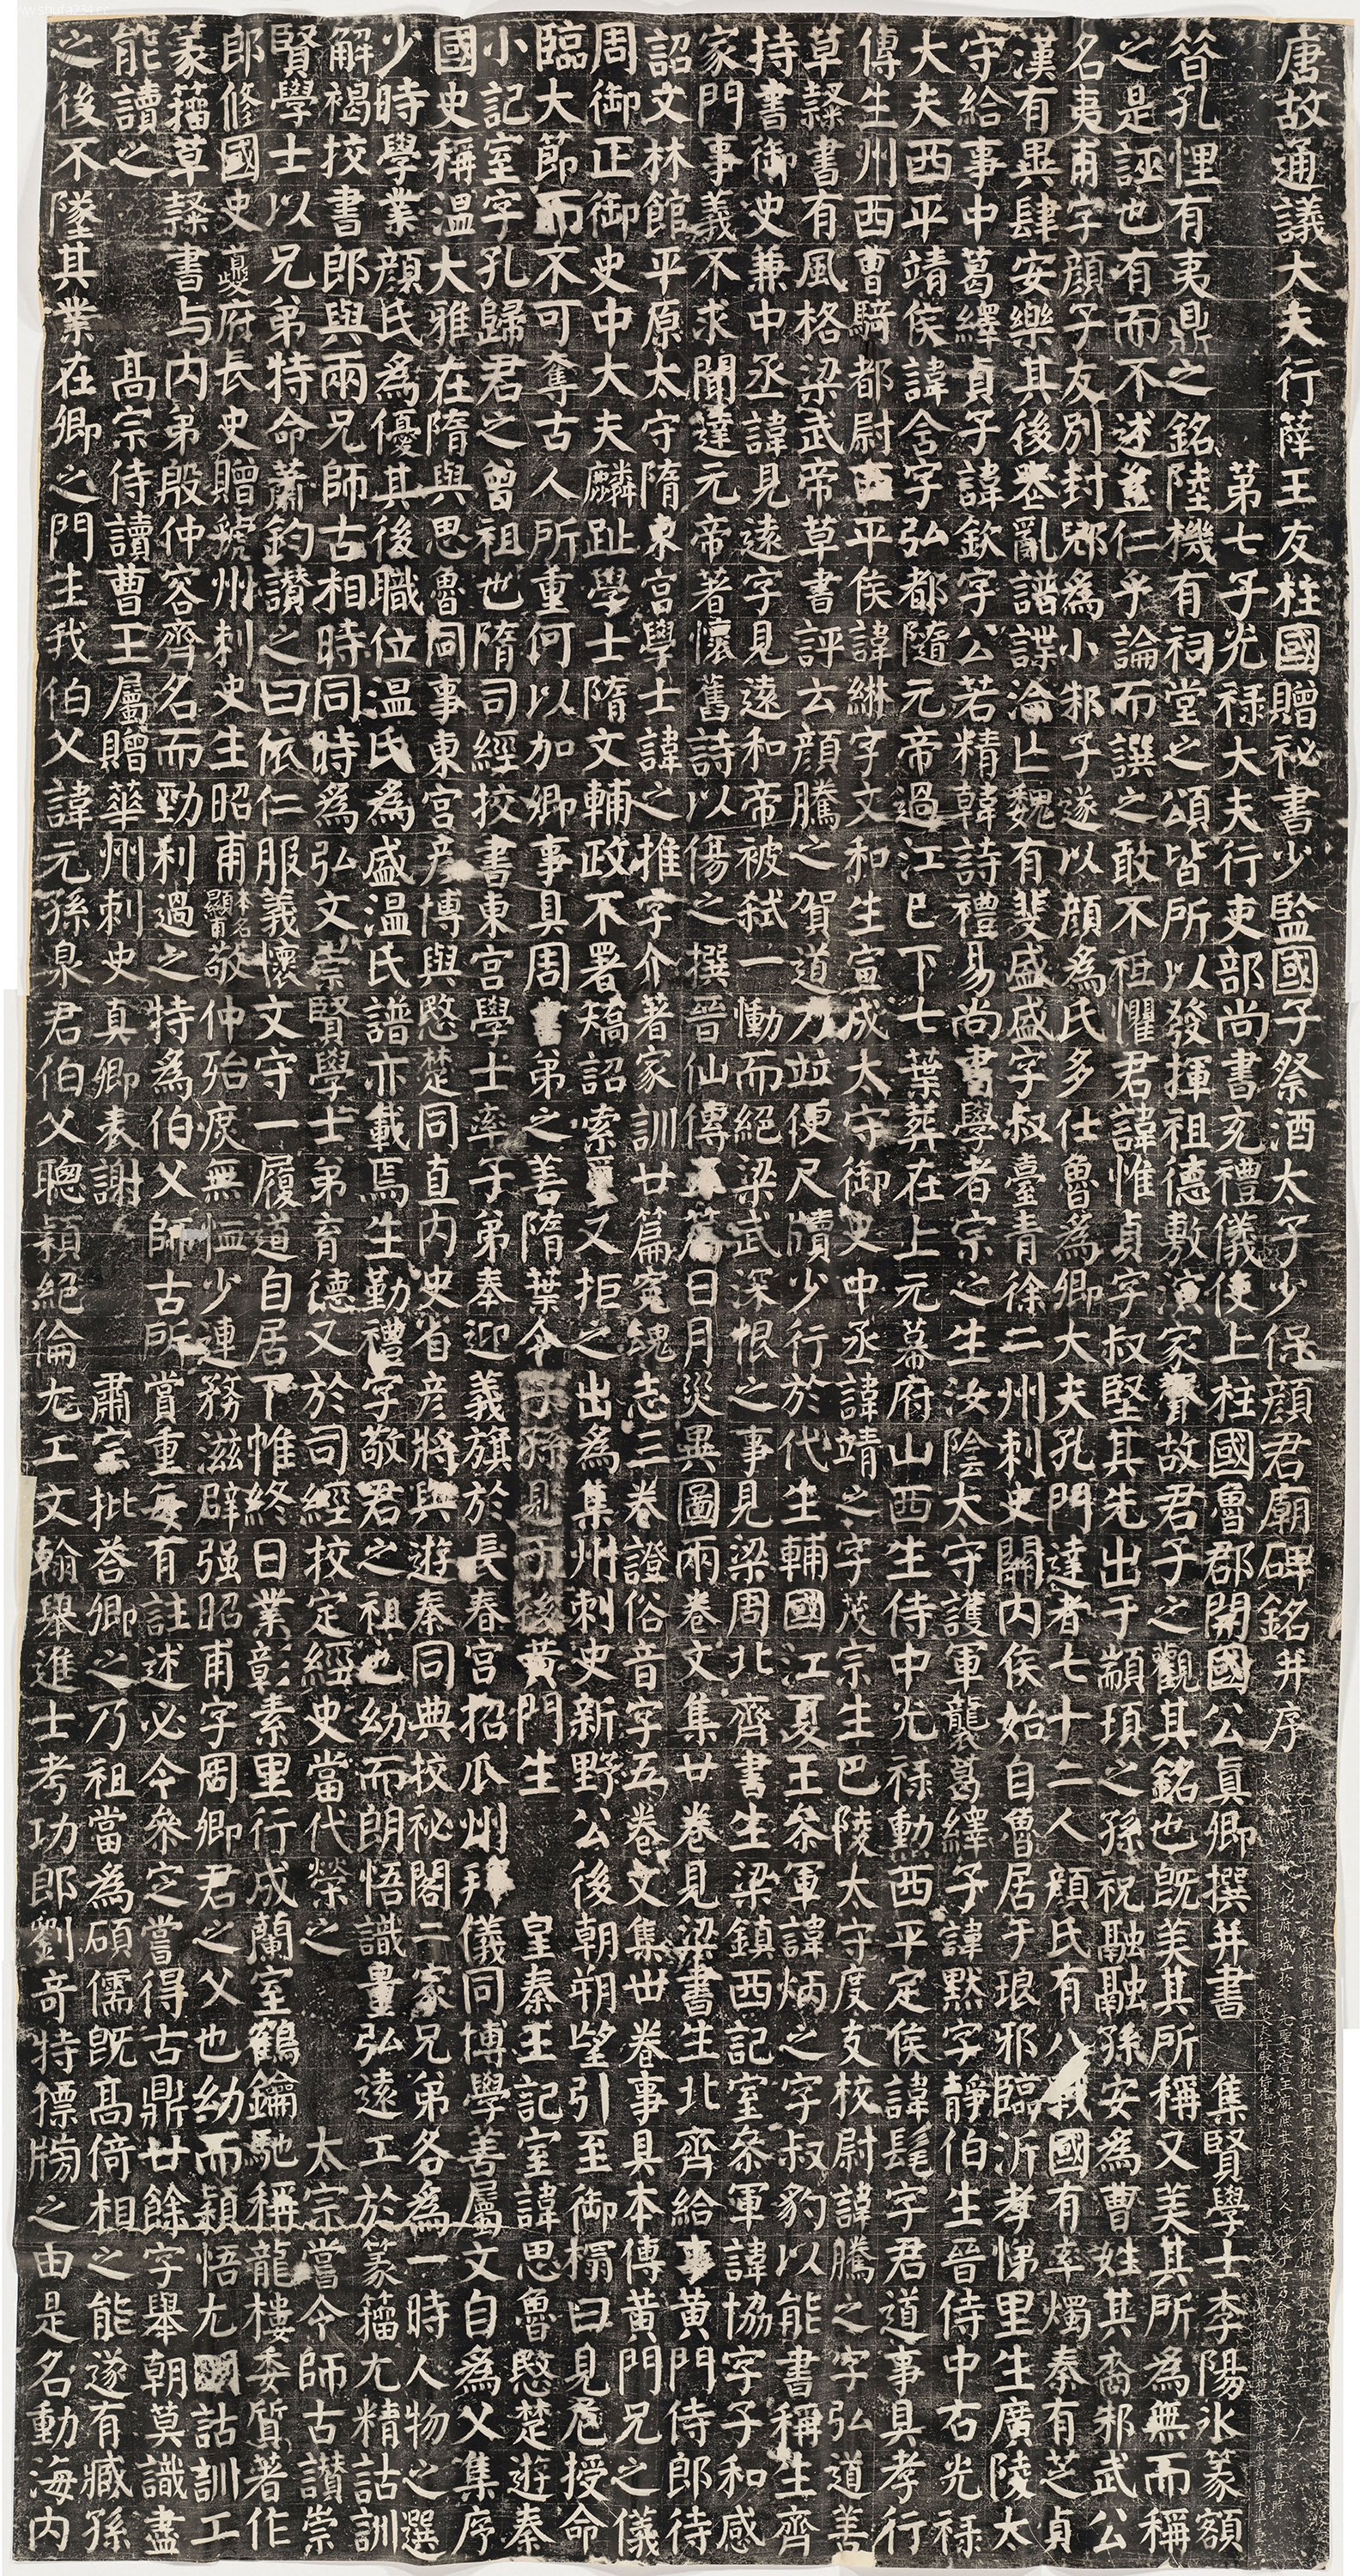 唐故通議大夫行薛王友柱國贈祕書少監國子祭酒太子少保顏君廟碑銘并序
第七子光祿大夫行吏部尚書充禮儀使上柱國魯郡開國公真卿撰并書 集賢學士李陽冰篆額
昔孔悝有夷鼎之銘陸機有祠堂之頌皆所以發揮祖德敷演家聲故君子之觀其銘也既美其所稱又美其所為無而稱
之是誣也有而不述豈仁乎論而譔之敢不祗懼君諱惟貞字叔堅其先出于顓頊之孫祝融融孫安為曹姓其裔邾武公
名夷甫字顏子友別封郳為小邾子遂以顏為氏多仕魯為卿大夫孔門達者七十二人顏氏有八戰國有率燭秦有芝貞
漢有異肆安樂其後喪亂譜諜淪亡魏有斐盛盛字叔臺青徐二州刺史關內侯始自魯居于琅邪臨沂孝悌里生廣陵太
守給事中葛繹貞子諱欽字公若精韓詩禮易尚書學者宗之生汝陰太守護軍襲葛繹子諱默字靜伯生晉侍中右光祿
大夫西平靖侯諱含字弘都隨元帝過江已下七葉葬在上元幕府山西生侍中光祿勳西平定侯諱髦字君道事具孝行
傳生州西曹騎都尉西平侯諱綝字文和生宣成太守御史中丞諱靖之字茂宗生巴陵太守度支校尉諱騰之字弘道善
草隸書有風格梁武帝草書評云顏騰之賀道力並便尺牘少行於代生輔國江夏王參軍諱炳之字叔豹以能書稱生齊
持書御史兼中丞諱見遠字見遠和帝被弒一慟而絕梁武深恨之事見梁周北齊書生梁鎮西記室參軍諱協字子和感
家門事義不求聞達元帝著懷舊詩以傷之撰晉仙傳五篇日月災異圖兩卷文集廿卷見梁書生北齊給事黃門侍郎待
詔文林館平原太守隋東宮學士諱之推字介著家訓廿篇冤魂志三卷證俗音字五卷文集卅卷事具本傳黃門兄之儀
周御正御史中大夫麟趾學士隋文輔政不署矯詔索璽又拒之出為集州刺史新野公後朝朔望引至御榻曰見危授命
臨大節而不可奪古人所重何以加卿事具周書弟之善隋葉令子孫見于後黃門生 皇秦王記室諱思魯愍楚遊秦
小記室字孔歸君之曾祖也隋司經挍書東宮學士率子弟奉迎義旗於長春宮招瓜州拜儀同博學善屬文自為父集序
國史稱溫大雅在隋與思魯同事東宮彥博與愍楚同直內史省彥將與遊秦同典校祕閣二家兄弟各為一時人物之選
少時學業顏氏為優其後職位溫氏為盛溫氏譜亦載焉生勤禮字敬君之祖也幼而朗悟識量弘遠工於篆籀尤精詁訓
解褐挍書郎與兩兄師古相時同時為弘文崇賢學士弟育德又於司經挍定經史當代榮之 太宗嘗令師古讚崇
賢學士以兄弟特命蕭鈞讚之曰依仁服義懷文守一履道自居下帷終日業彰素里行成蘭室鶴鑰馳稱龍樓委質著作
郎修國史夔府長史贈虢州刺史生昭甫本名顯甫敬仲殆庶無恤少連務滋辟强昭甫字周卿君之父也幼而穎悟尤明詁訓工
篆籀草隸書与內弟殷仲容齊名而勁利過之特為伯父師古所賞重每有註述必令參定嘗得古鼎廿餘字舉朝莫識盡
能讀之 高宗侍讀曹王屬贈華州刺史真卿表謝 肅宗批荅卿之乃祖當為碩儒既高倚相之能遂有臧孫
之後不墜其業在卿之門生我伯父諱元孫泉君伯父聰穎絕倫尤工文翰舉進士考功郎劉奇特標牓之由是名動海內